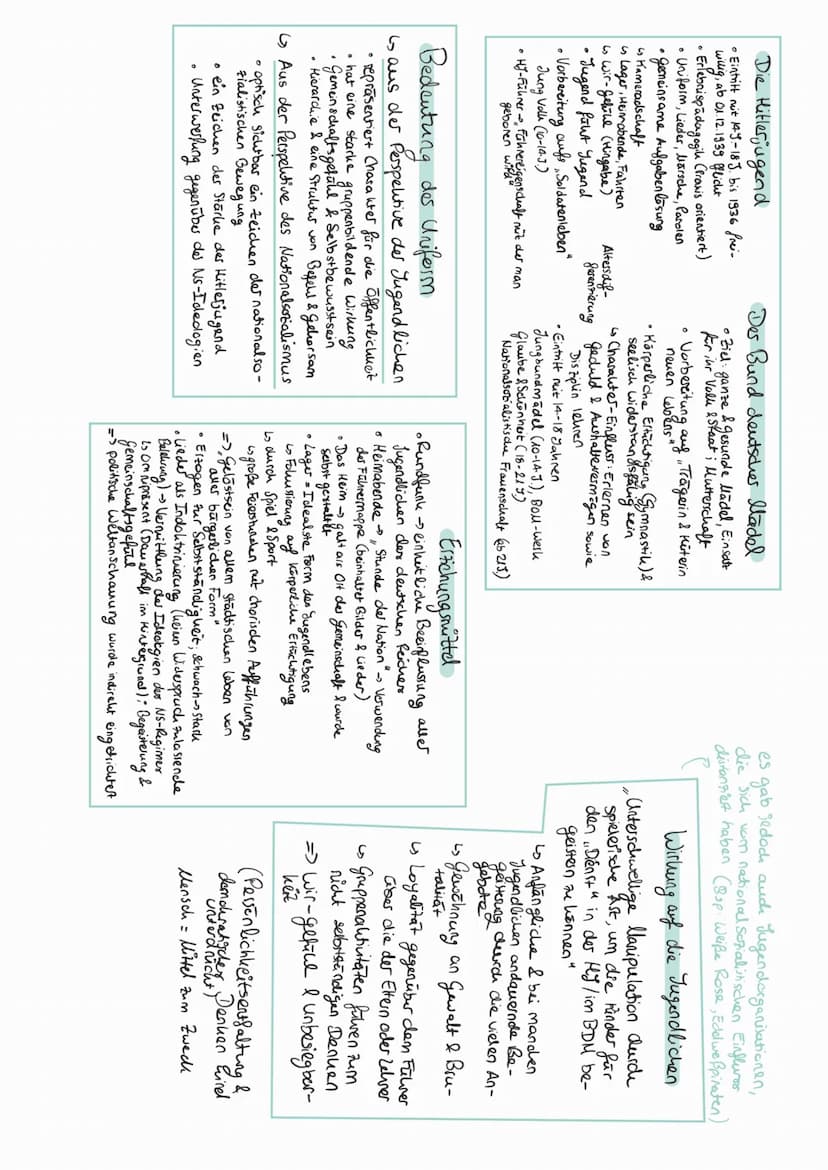 Die Hitlerjugend
• Eintritt mit 14J-18J. bis 1936 frei-
willig, ab 01.12.1939 Pflicht
• Erlebnispädagogik (Praxis orientiert)
• Uniform, Lieder, Märsche, Parolen
• gemeinsame Aufgabenlösung
↳ Kameradschaft
↳ Lager, Heimabende, Fahrten
↳ Wir-Gefühl (Hingabe)
• Jugend führt Jugend
• Vorbereitung aufs „Soldatenleben"
Jung Volk (10-14J.)
• HJ-Führer → „Führereigenschaft mit der man
geboren wird"
Altersdif-
ferenzierung
Der Bund deutscher Mädel
• Ziel: ganze & gesunde Mädel, Einsatz
für ihr Volk & Staat; Mutterschaft
• Vorbereitung auf „Trägerin & Hüterin
neuen Lebens"
• Körperliche Ertüchtigung (Gymnastik) &
seelisch widerstandsfähig sein
↳ Charakter-Einfluss: Erlernen von
Geduld & Aushaltevermögen sowie
Disziplin lehren
• Eintritt mit 14-18 Jahren
Jungbundmädel (10-14J.), BDM-Werk
Glaube & Schönheit (18-21J)
Nationalsozialistische Frauenschaft (ab 21J.)
es gab jedoch auch Jugendorganisationen,
die sich vom nationalsozialistischen Einfluss
distanziert haben (Bsp: Weiße Rose, Edelweißpiraten)
Bedeutung der Uniform
↳ aus der Perspektive der Jugendlichen
• repräsentiert Charakter für die Öffentlichkeit
• hat eine starke gruppenbildende Wirkung
• Gemeinschaftsgefühl & Selbstbewusstsein
• Hierarchie & eine Struktur von Befehl & Gehorsam
↳ Aus der Perspektive des Nationalsozialismus
• optisch sichtbar ein Zeichen der nationalso-
zialistischen Bewegung
• ein Zeichen der Stärke der Hitlerjugend
• Unterwerfung gegenüber der NS-Ideologien
Erziehungsmittel
• Rundfunk → einheitliche Beeinflussung aller
Jugendlichen des deutschen Reiches
• Heimabende → „Stunde der Nation" → Verwendung
der Führermappe (beinhaltet Bilder & Lieder)
• Das Heim → galt als Ort der Gemeinschaft & wurde
selbst gestaltet
• Lager = Idealste Form des Jugendlebens
↳ Fokussierung auf körperliche Ertüchtigung
↳ durch Spiel & Sport
↳ große Feierstunden mit chorischen Aufführungen
=> „Gelöstsein von allem städtischen Leben von
aller bürgerlichen Form"
• Erziehen zur Selbstständigkeit; schwach → stark
• Lieder als Indoktrinierung (keinen Widerspruch zulassende
Belehrung) → Vermittlung der Ideologien des NS-Regimes
↳ omnipresent (Dauerhaft im Hintergrund); Begeisterung &
Gemeinschaftsgefühl
=> politische Weltanschauung wurde indirekt eingetrichtert
Wirkung auf die Jugendlichen
„Unterschwellige Manipulation durch
spielerische Art, um die Kinder für
den „Dienst" in der HJ/im BDM be-
geistern zu können"
↳ Anfängliche & bei manchen
Jugendlichen andauernde Be-
geisterung durch die vielen An-
gebote
↳ Gewöhnung an Gewalt & Bru-
talität
↳ Loyalität gegenüber dem Führer
über die der Eltern oder Lehrer
↳ Gruppenaktivitäten führen zum
nicht selbstständigen Denken
=> Wir-Gefühl & Unbesiegbar-
keit
(Persönlichkeitsentfaltung &
demokratisches Denken wird
unterdrückt)
Mensch = Mittel zum Zweck